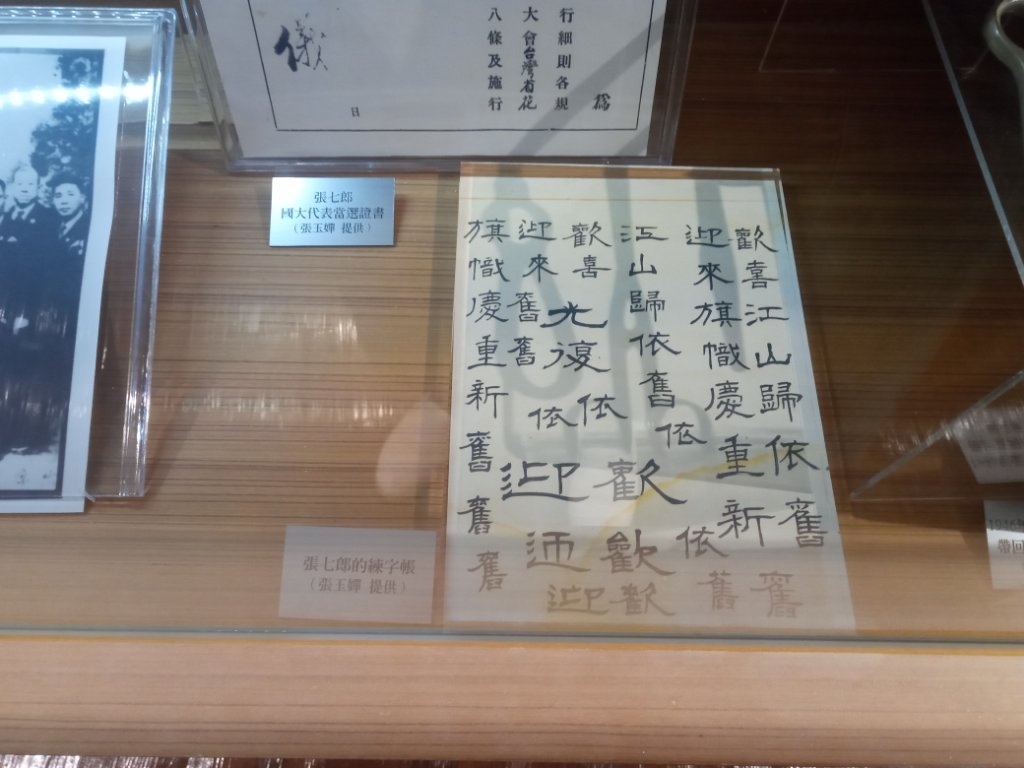 行細則各規
大會台灣省花
八條及施行
日
張七郎
國大代表當選證書
（張玉嬋 提供）
歡喜江山歸依舊舊
迎來旗幟慶重新依舊
江山歸依舊依
歡喜光復依歡歡歡
迎來舊舊依迎迎迎
旗幟慶重新舊舊舊
張七郎的練字帳
（張玉嬋 提供）
帶回